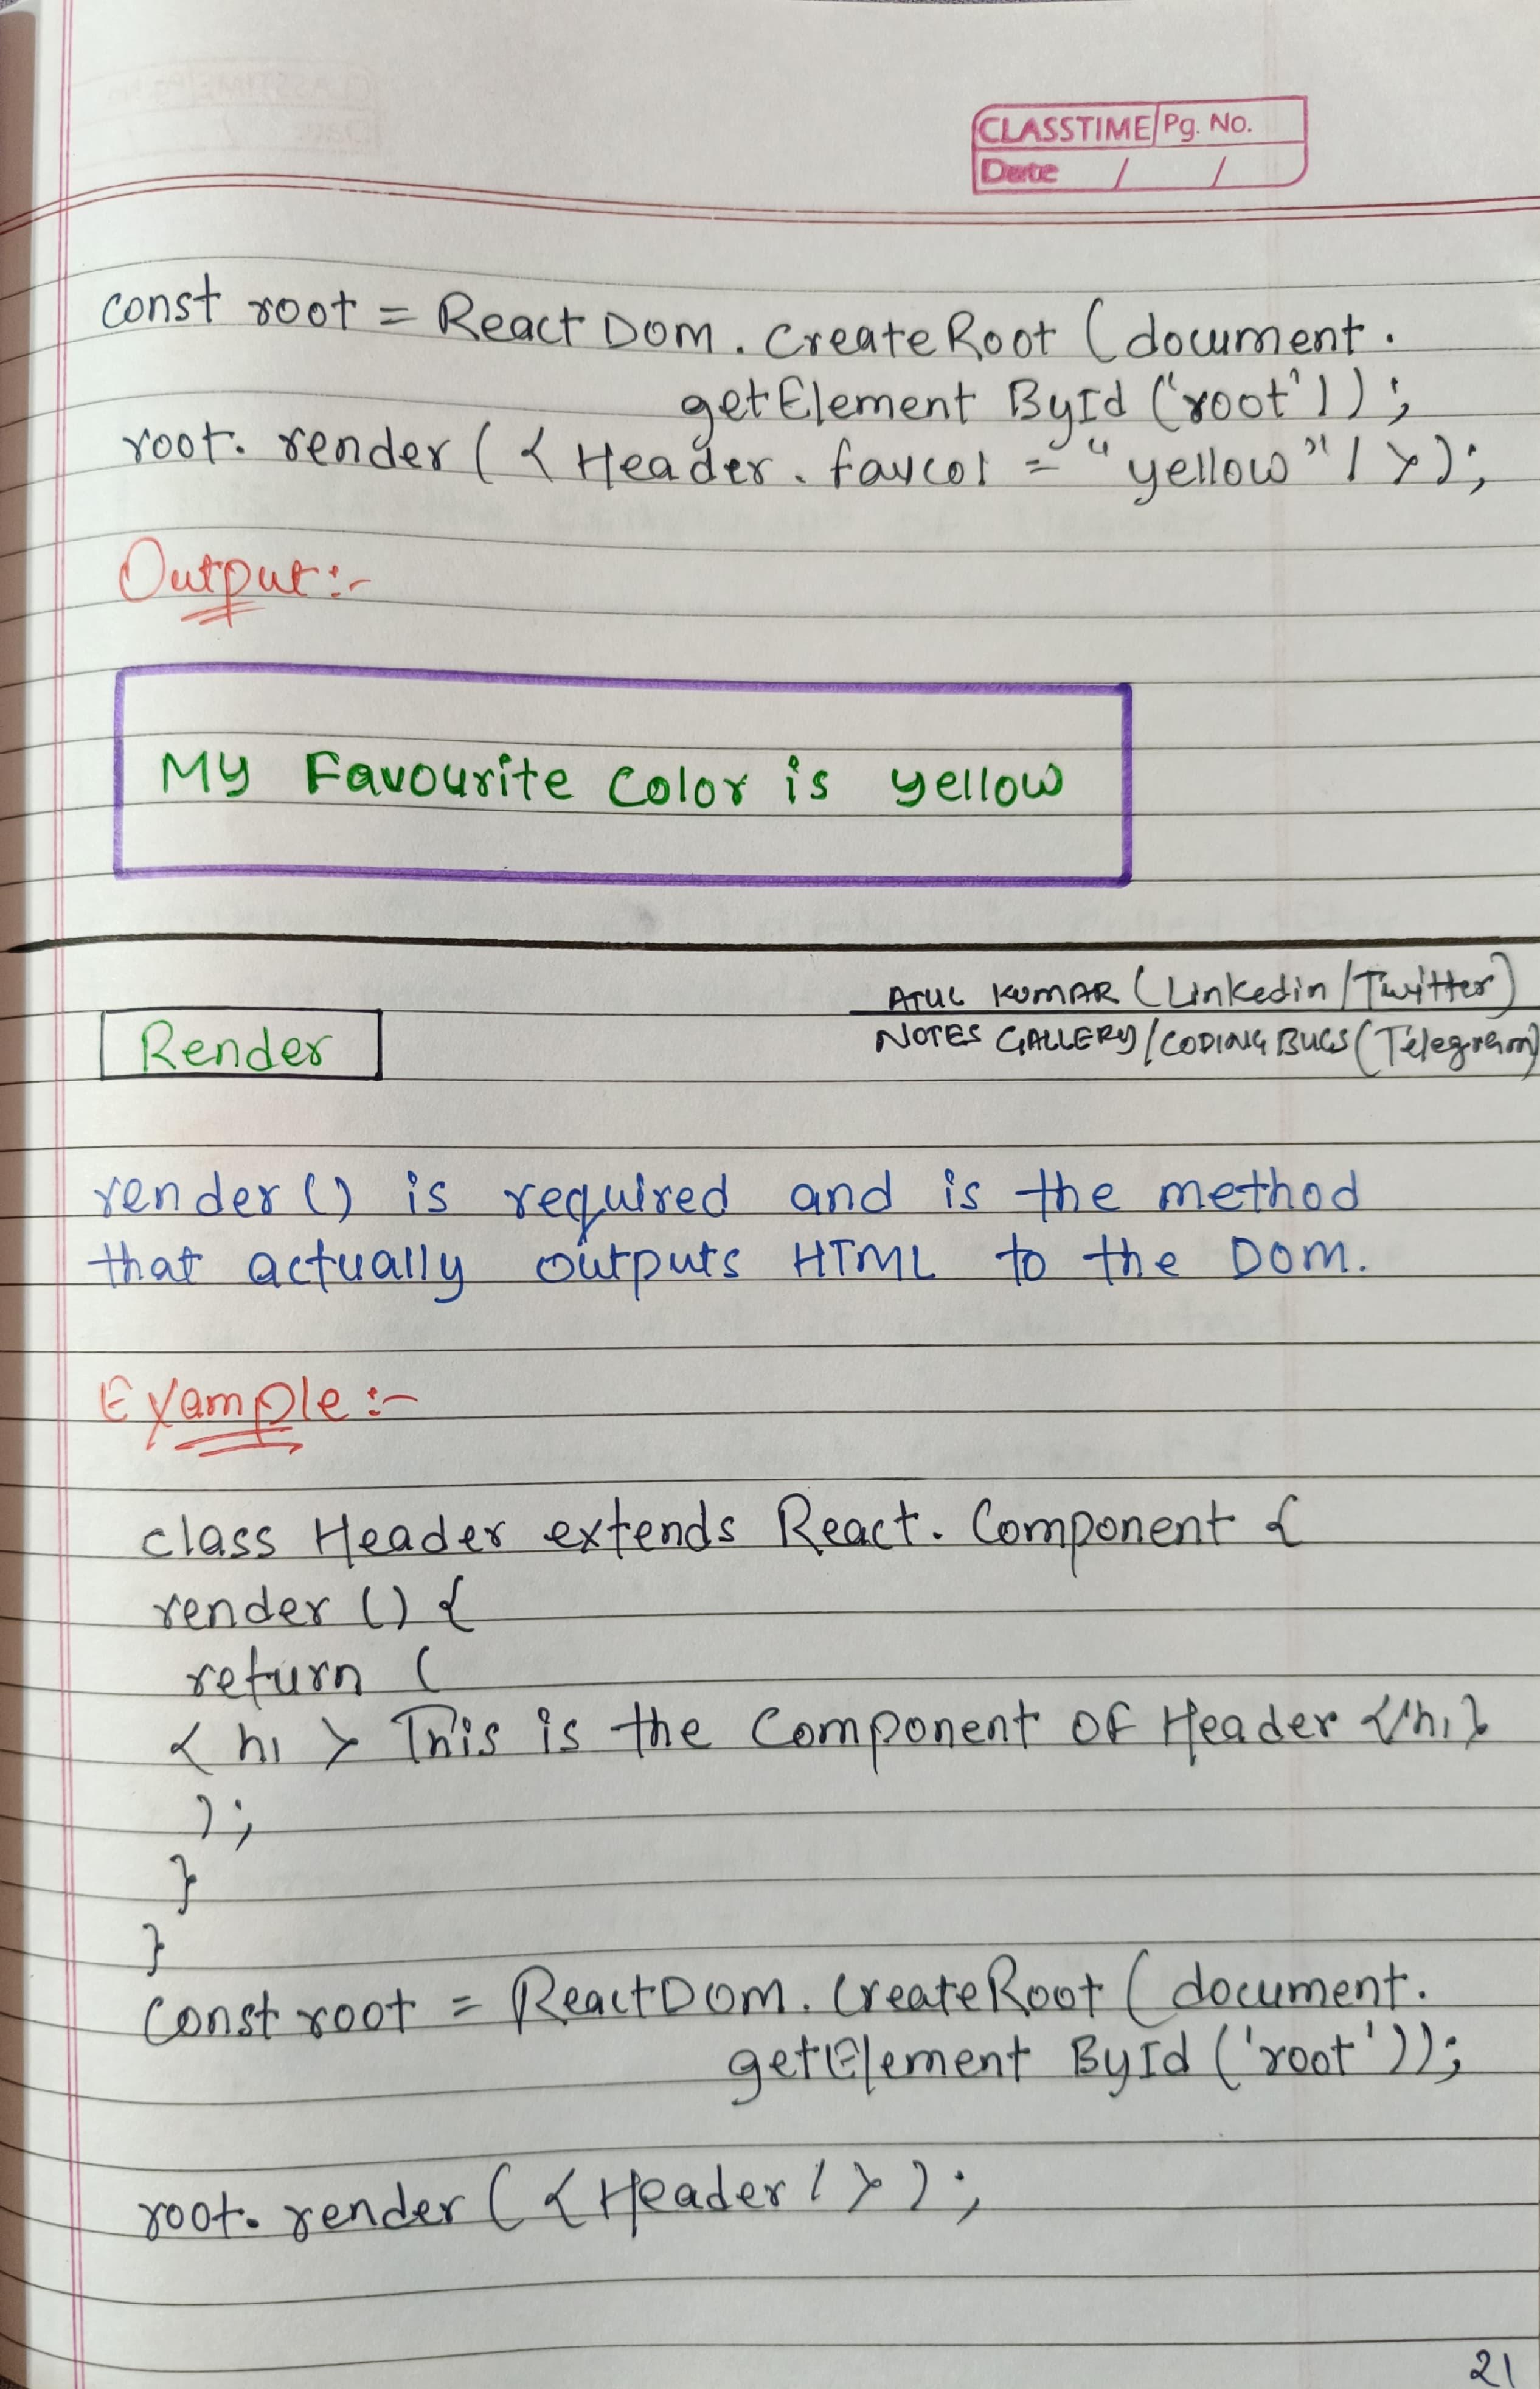 CLASSTIME Pg. No.
Date / /
const root = ReactDOM.createRoot(document.
getElementById('root'));
root.render(<Header.favcol = "yellow"/>);
Output:-
My Favourite Color is yellow
ATUL KUMAR (Linkedin/Twitter)
Render
NOTES GALLERY/CODING BUGS (Telegram)
render() is required and is the method
that actually outputs HTML to the DOM.
Example:-
class Header extends React.Component {
render() {
return (
<h1> This is the Component OF Header </h1}
);
}
}
Const root = ReactDOM.CreateRoot(document.
getElementById('root'));
root.render(<Header/>);
21